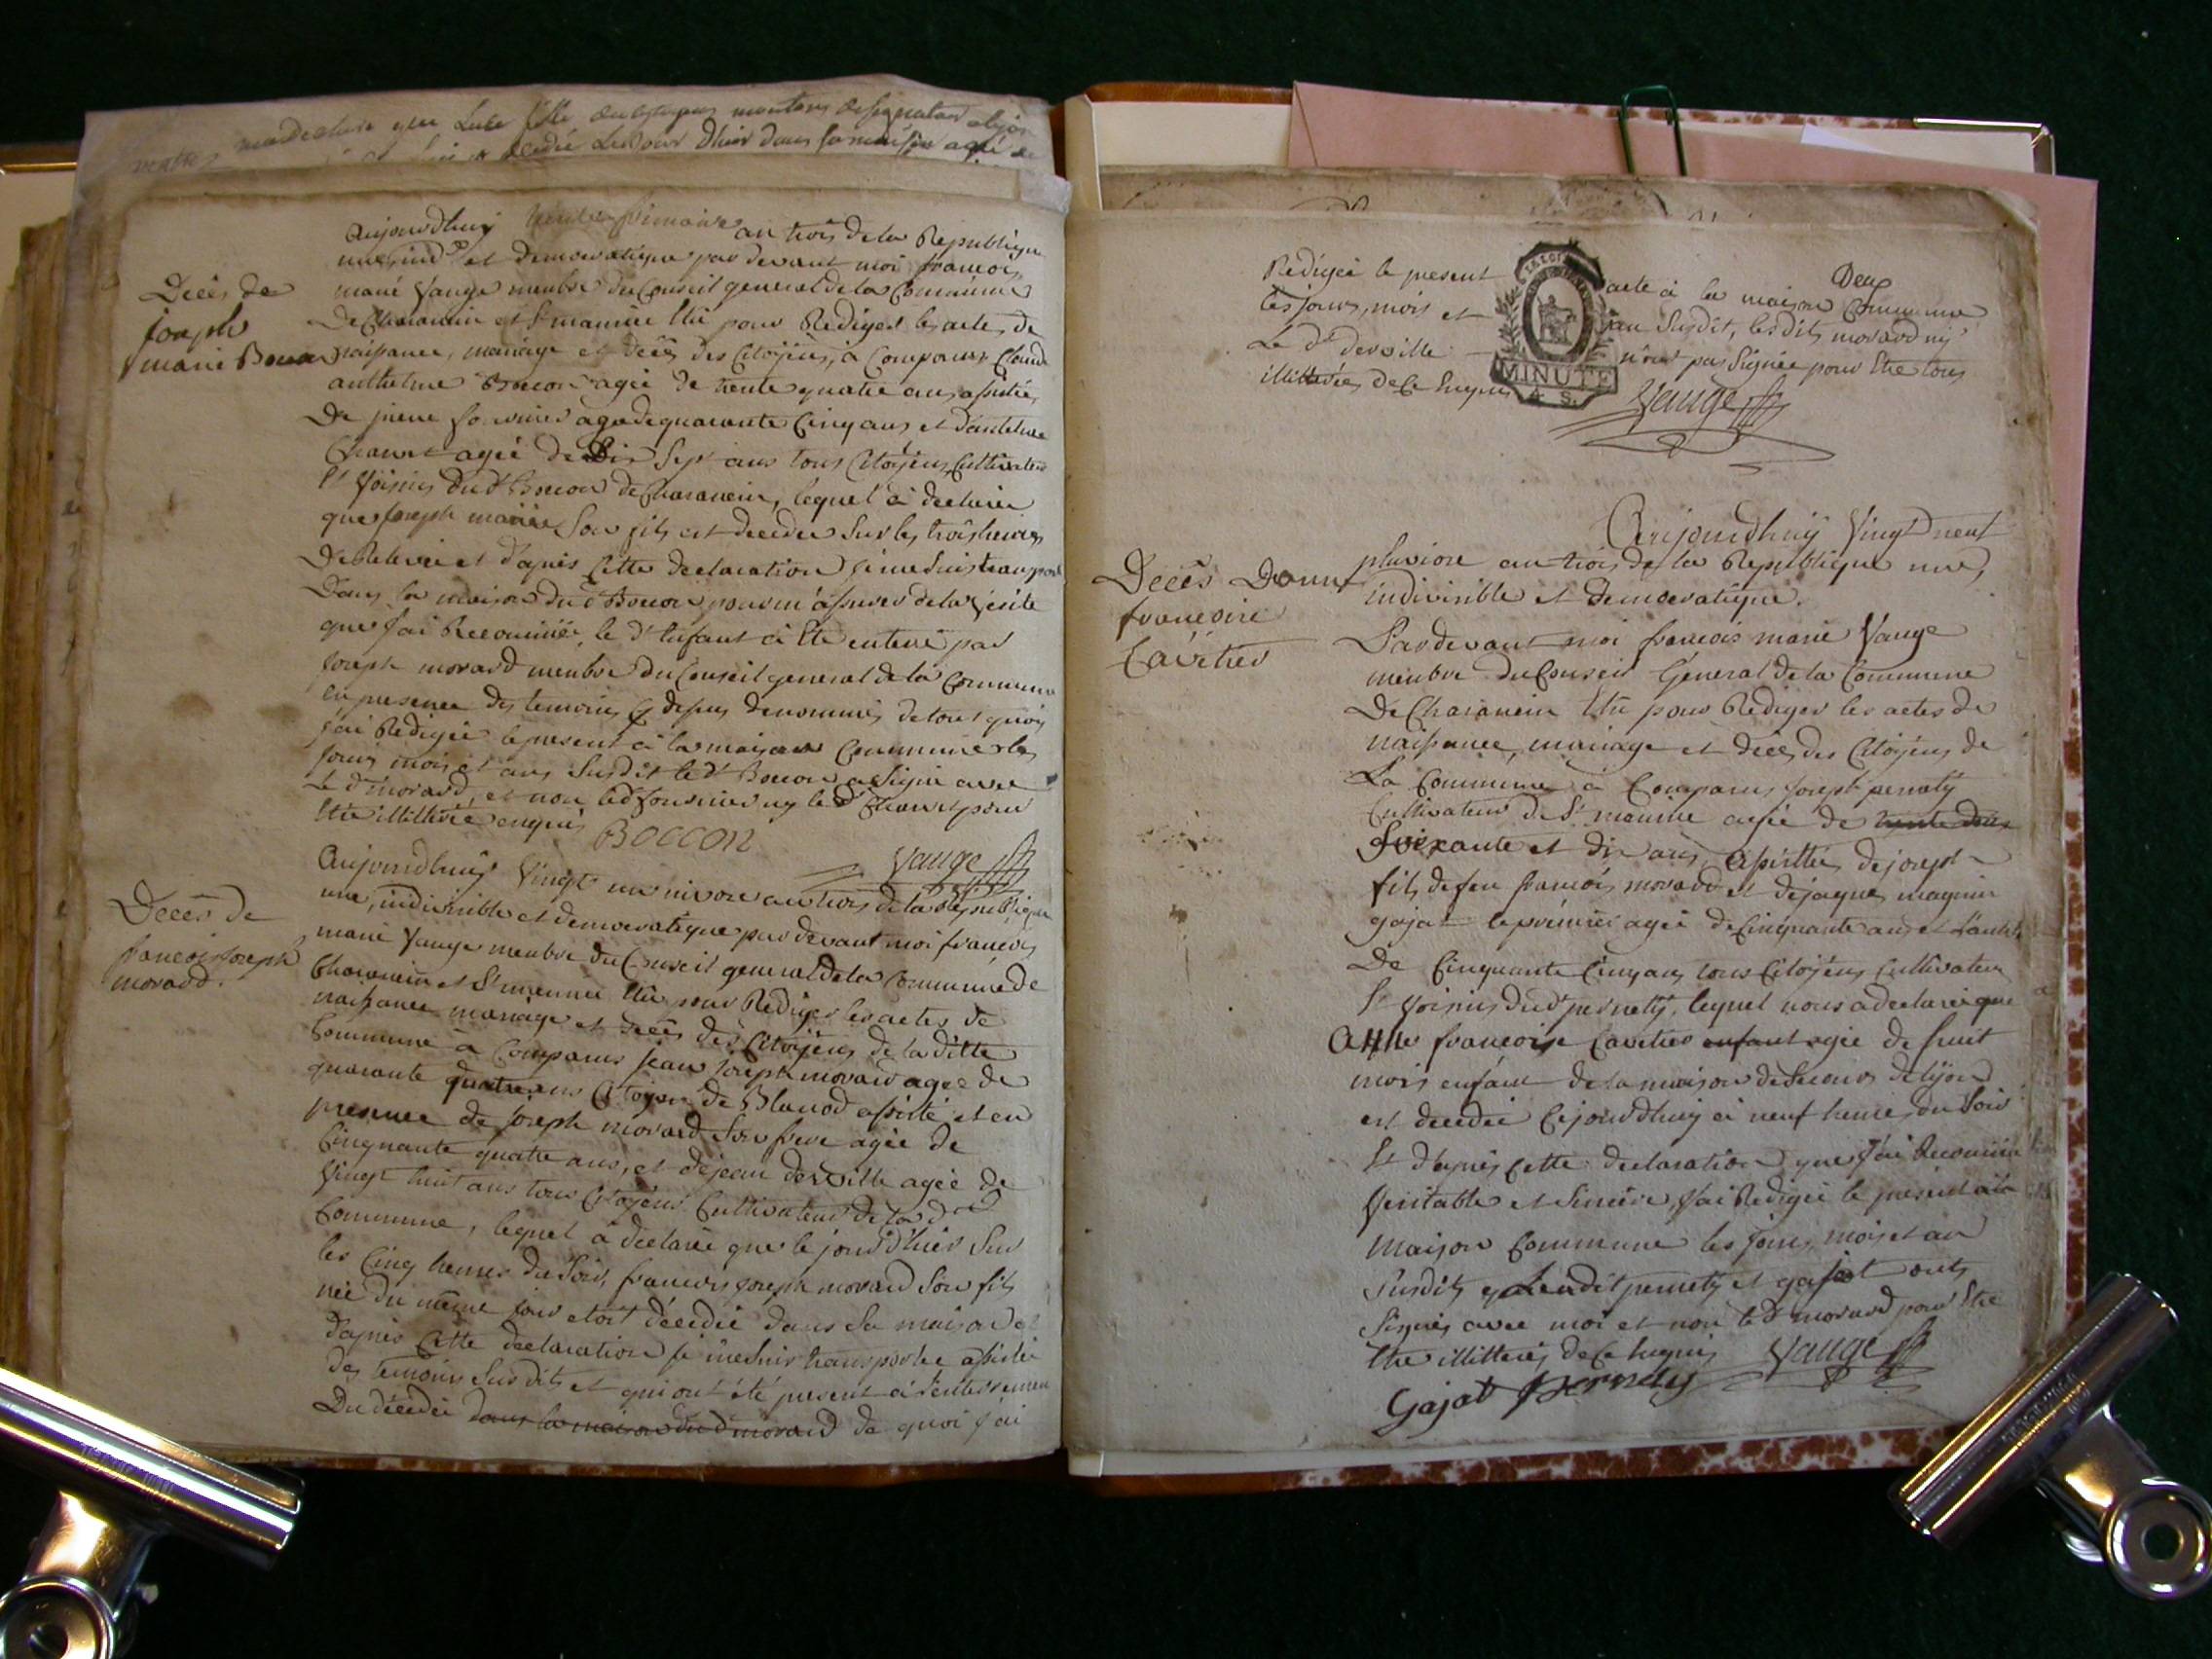 Aujourdhuy frimaire an trois de la Republique
une, ind. et democratique par devant moi francois
marie Vauge membre du Conseil general de la Commune
De Charancin et St maurice Elu pour Rediger les actes de
naissance, mariage et decès des Citoyens, à Comparus Claude
anthelme Bocon agée de trente quatre ans assistée
De pierre fournier agé de quarante Cinq ans et D'anthelme
Chanet agée de Dix Sept ans tous Citoyens Cultivateur
Et Voisins du dt Bocon de Charancin, lequel à declarée
que Joseph marie Son fils est decedée Sur les trois heures
De Relevée et d'après Cette declaration je me suis transporté
Dans la maison du dt Bocon pour m'assurer de la verité
que j'ai Reconnuée, le dt Enfant à Eté enterré par
Joseph morard membre du Conseil general de la Commune
en presence des temoins Cy dessus denommés de tout quoy
j'ai Redigée le present à la maison Commune les
jours mois et ans Susdit le dt Bocon a Signée avec
Le dt morard, et non led fournier ny le dt Chanet pour
Etre illitterée enquis BOCCON
Vauge
Decès de
joseph
marie Bocon
Aujourdhuy Vingt un nivose an trois de la Republique
une, indivisible et democratique par devant moi francois
marie Vauge membre du Conseil general de la Commune de
Charancin et St maurice Elu pour Rediger les actes de
naissance mariage et decès des Citoyens de la ditte
Commune à Comparus jean Joseph morard agée de
quarante quatre ans Citoyen de Blanod assisté et en
presence de Joseph morard Son frere agée de
Cinquante quatre ans, et de jean derville agée de
Vingt huit ans tous Citoyens Cultivateur de la de
Commune, lequel à declarée que le jour d'hier Sur
les Cinq heures du Soir, francois joseph morard Son fils
née du même jour etoit décedée dans Sa maison et
d'après Cette declaration je me suis transportée assistée
des temoins Susdits et qui ont été present à l'enterrement
Du décedée dans la maison du dt morard de quoi j'ai
Decès de
francois joseph
morard.
Deux
Redigée le present acte à la maison Commune
les jours, mois et an Susdit, lesdits morard ny
Le dt derville n'ont pas Signée pour Etre tous
illitterées de Ce Enquis Vauge
LA LOI
MINUTE
4 S.
Aujourdhuy Vingt neuf
pluviose an trois de la Republique une,
indivisible et democratique.
Decès Danne
francoise
Cavetier
Pardevant moi francois marie Vauge
membre du Conseil Géneral de la Commune
De Charancin Elu pour Rediger les actes de
naissance, mariage et decès des Citoyens de
La Commune à Comparus joseph pernety
Cultivateur de St maurice agée de trente deux
Soixante et dix ans, assistée de joseph
fils de feu francois morard et de jaques magnin
gojat le premier agée de Cinquante ans et L'autre
De Cinquante Cinq ans tous Citoyens Cultivateur
Et Voisins du dt pernety, lequel nous a declarée que
Anne francoise Cavetier enfant agée de huit
mois enfant de la maison de Secours de lyon
est decedée Cejourdhuy à neuf heures du Soir
Et d'après Cette declaration que j'ai Reconnuée
Veritable et Sincere, j'ai Redigée le present à la
maison Commune les jours, mois et an
Susdits, Ledit pernety et gojat ont
Signés avec moi et non le dt morard pour Etre
Etre illitterés de Ce Enquis Vauge
Gojat Pernety